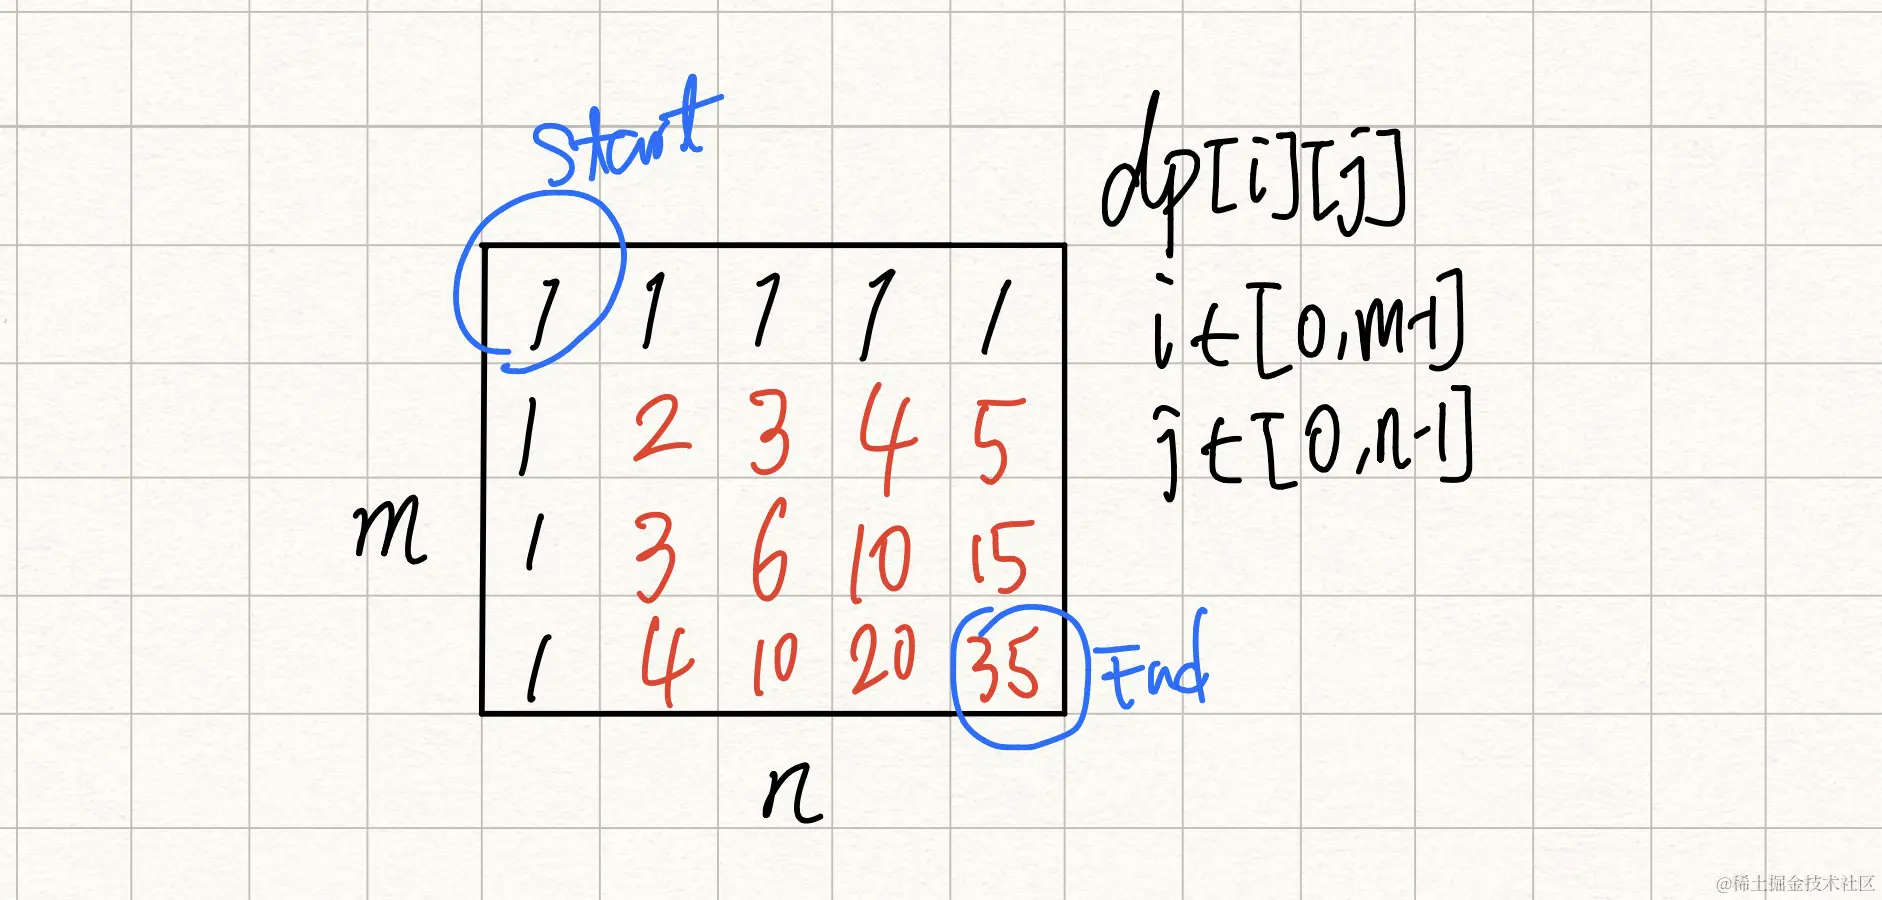 Start
dp[i][j]
1 1 1 1 1
i∈[0,m-1]
1 2 3 4 5
j∈[0,n-1]
m
1 3 6 10 15
1 4 10 20 35
End
n
@稀土掘金技术社区